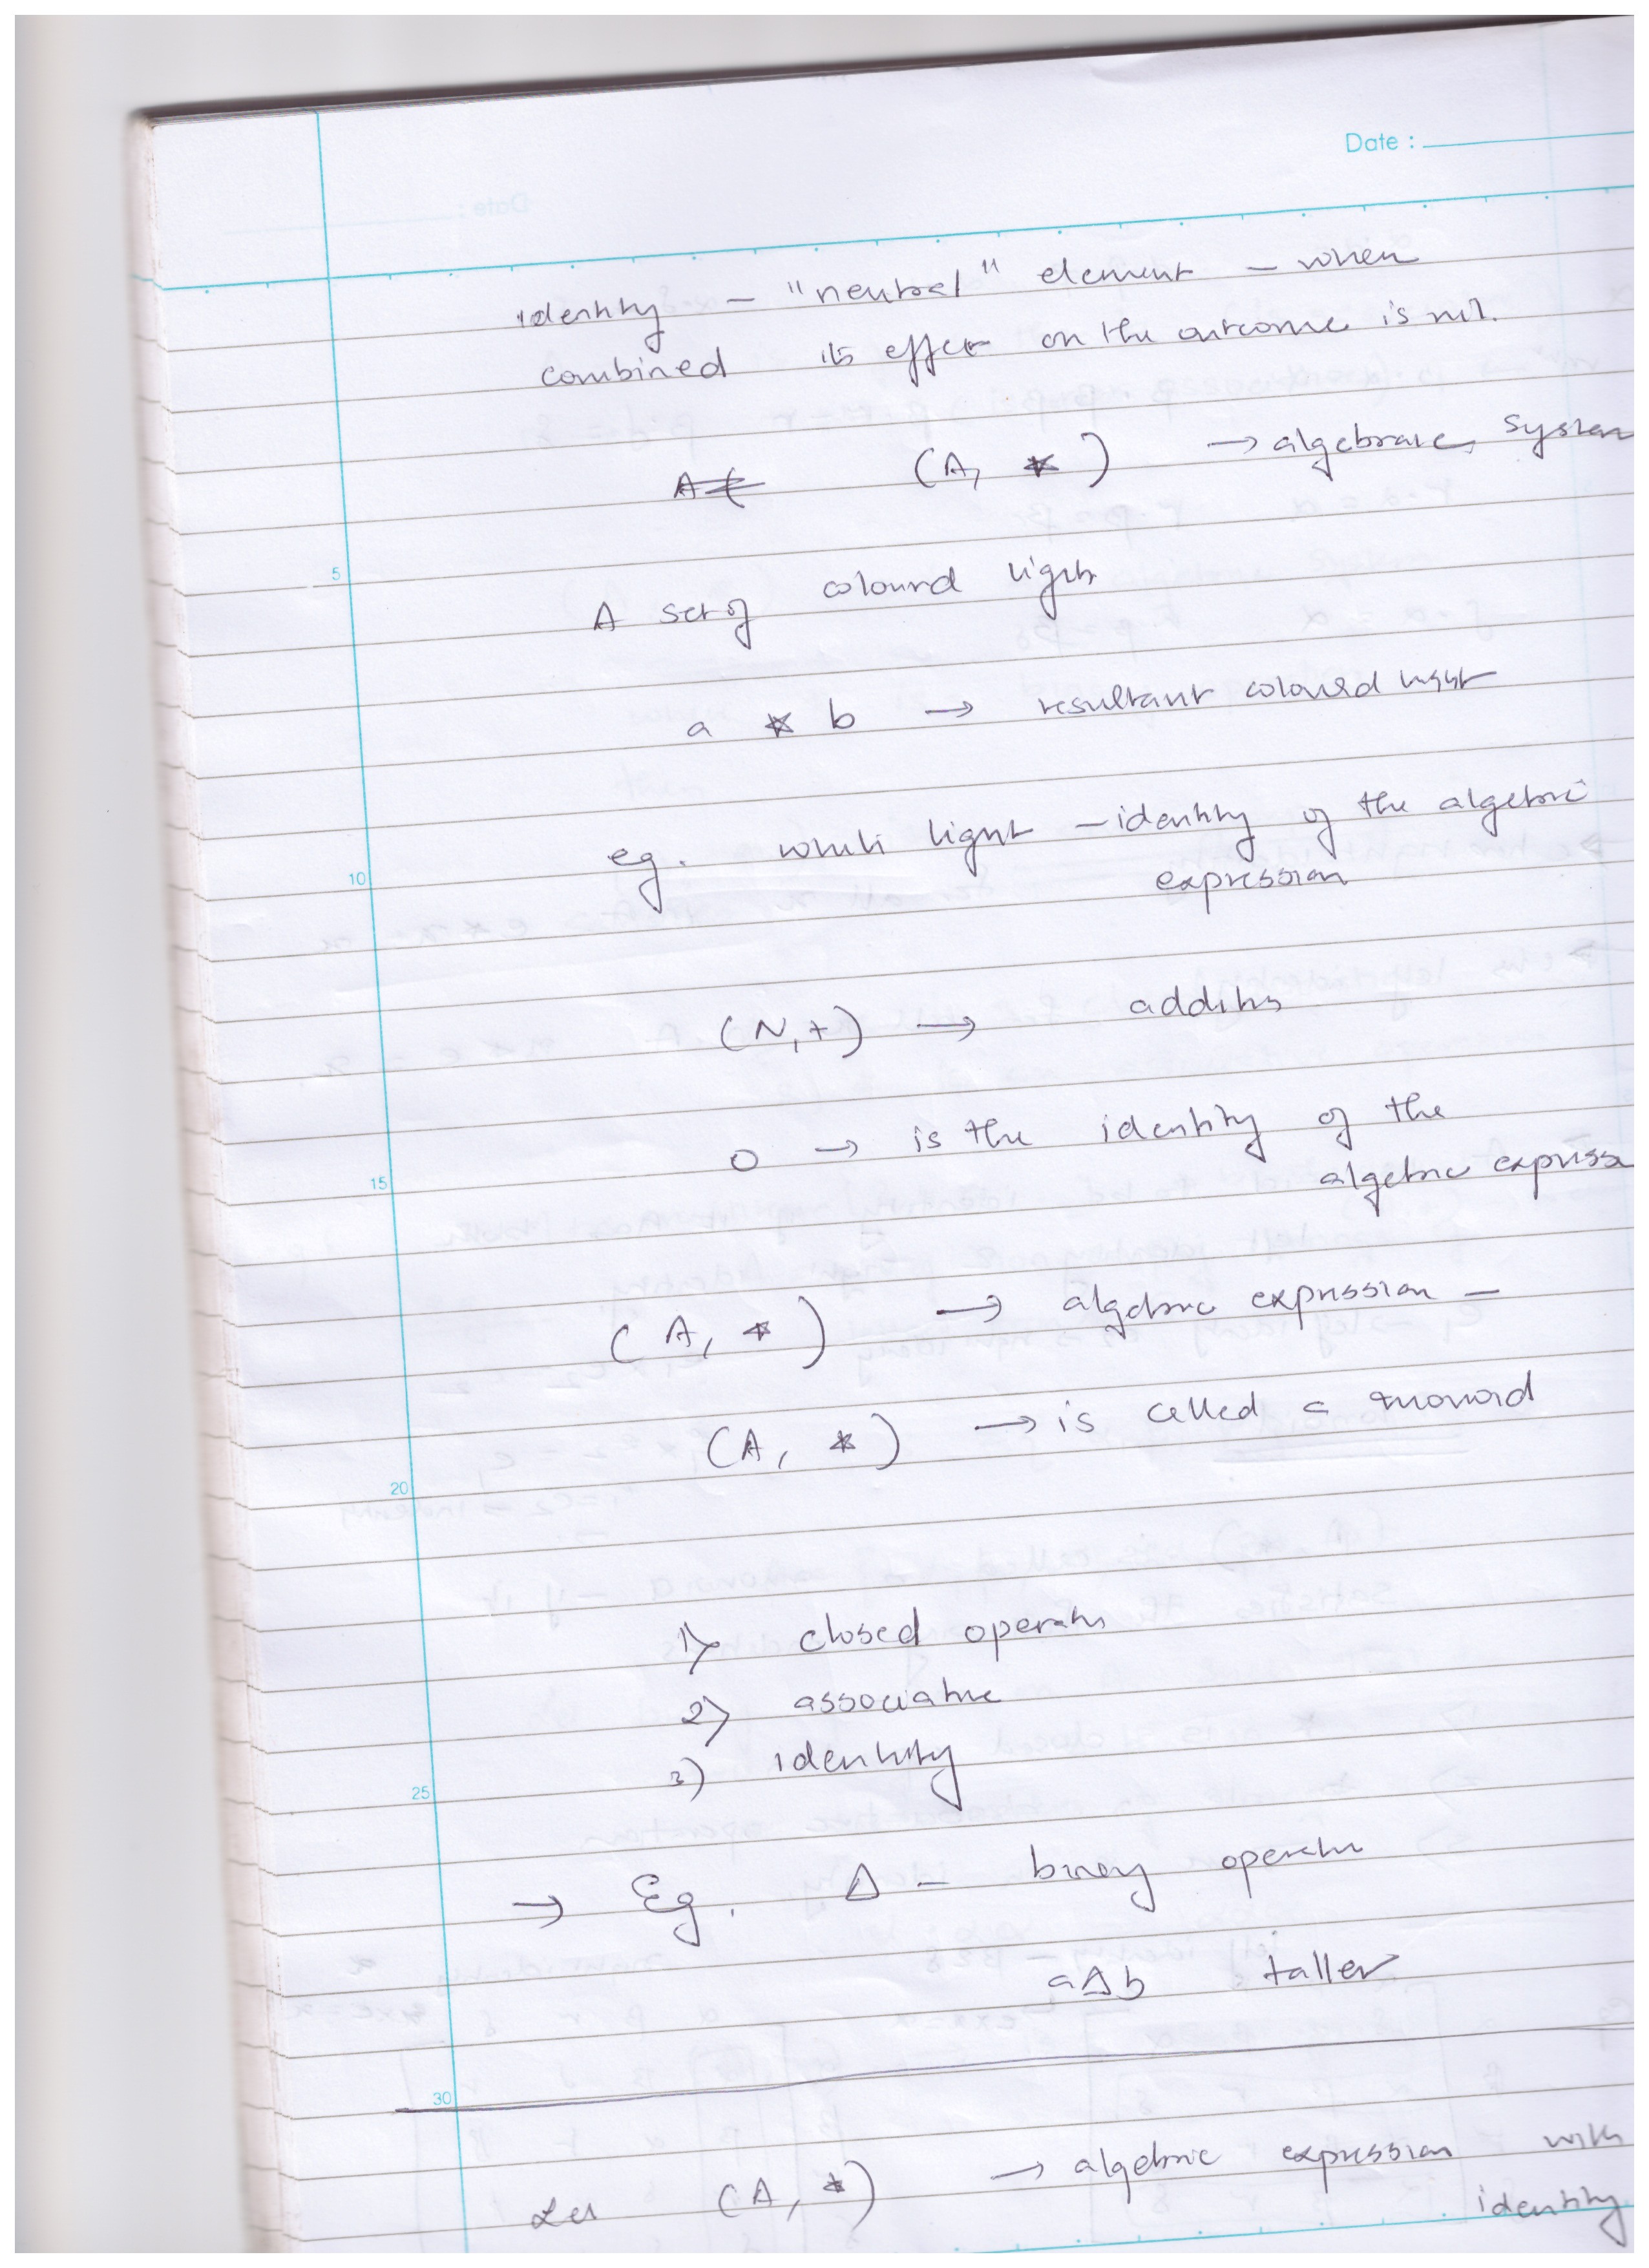 Date :
identity - "neutral" element - when
combined its effect on the outcome is nil.
A ( (A, *) → algebraic system
5
A set of coloured lights
a * b → resultant coloured light
eg. white light - identity of the algebric
10
expression
(N, +) → addition
0 → is the identity of the
15
algebric express
(A, *) → algebric expression -
(A, *) → is called a monoid
20
1) closed operatn
2) associative
3) identity
25
→ Eg. Δ - binary operatn
aΔb taller
30
Let (A, *) → algebric expression with
identity